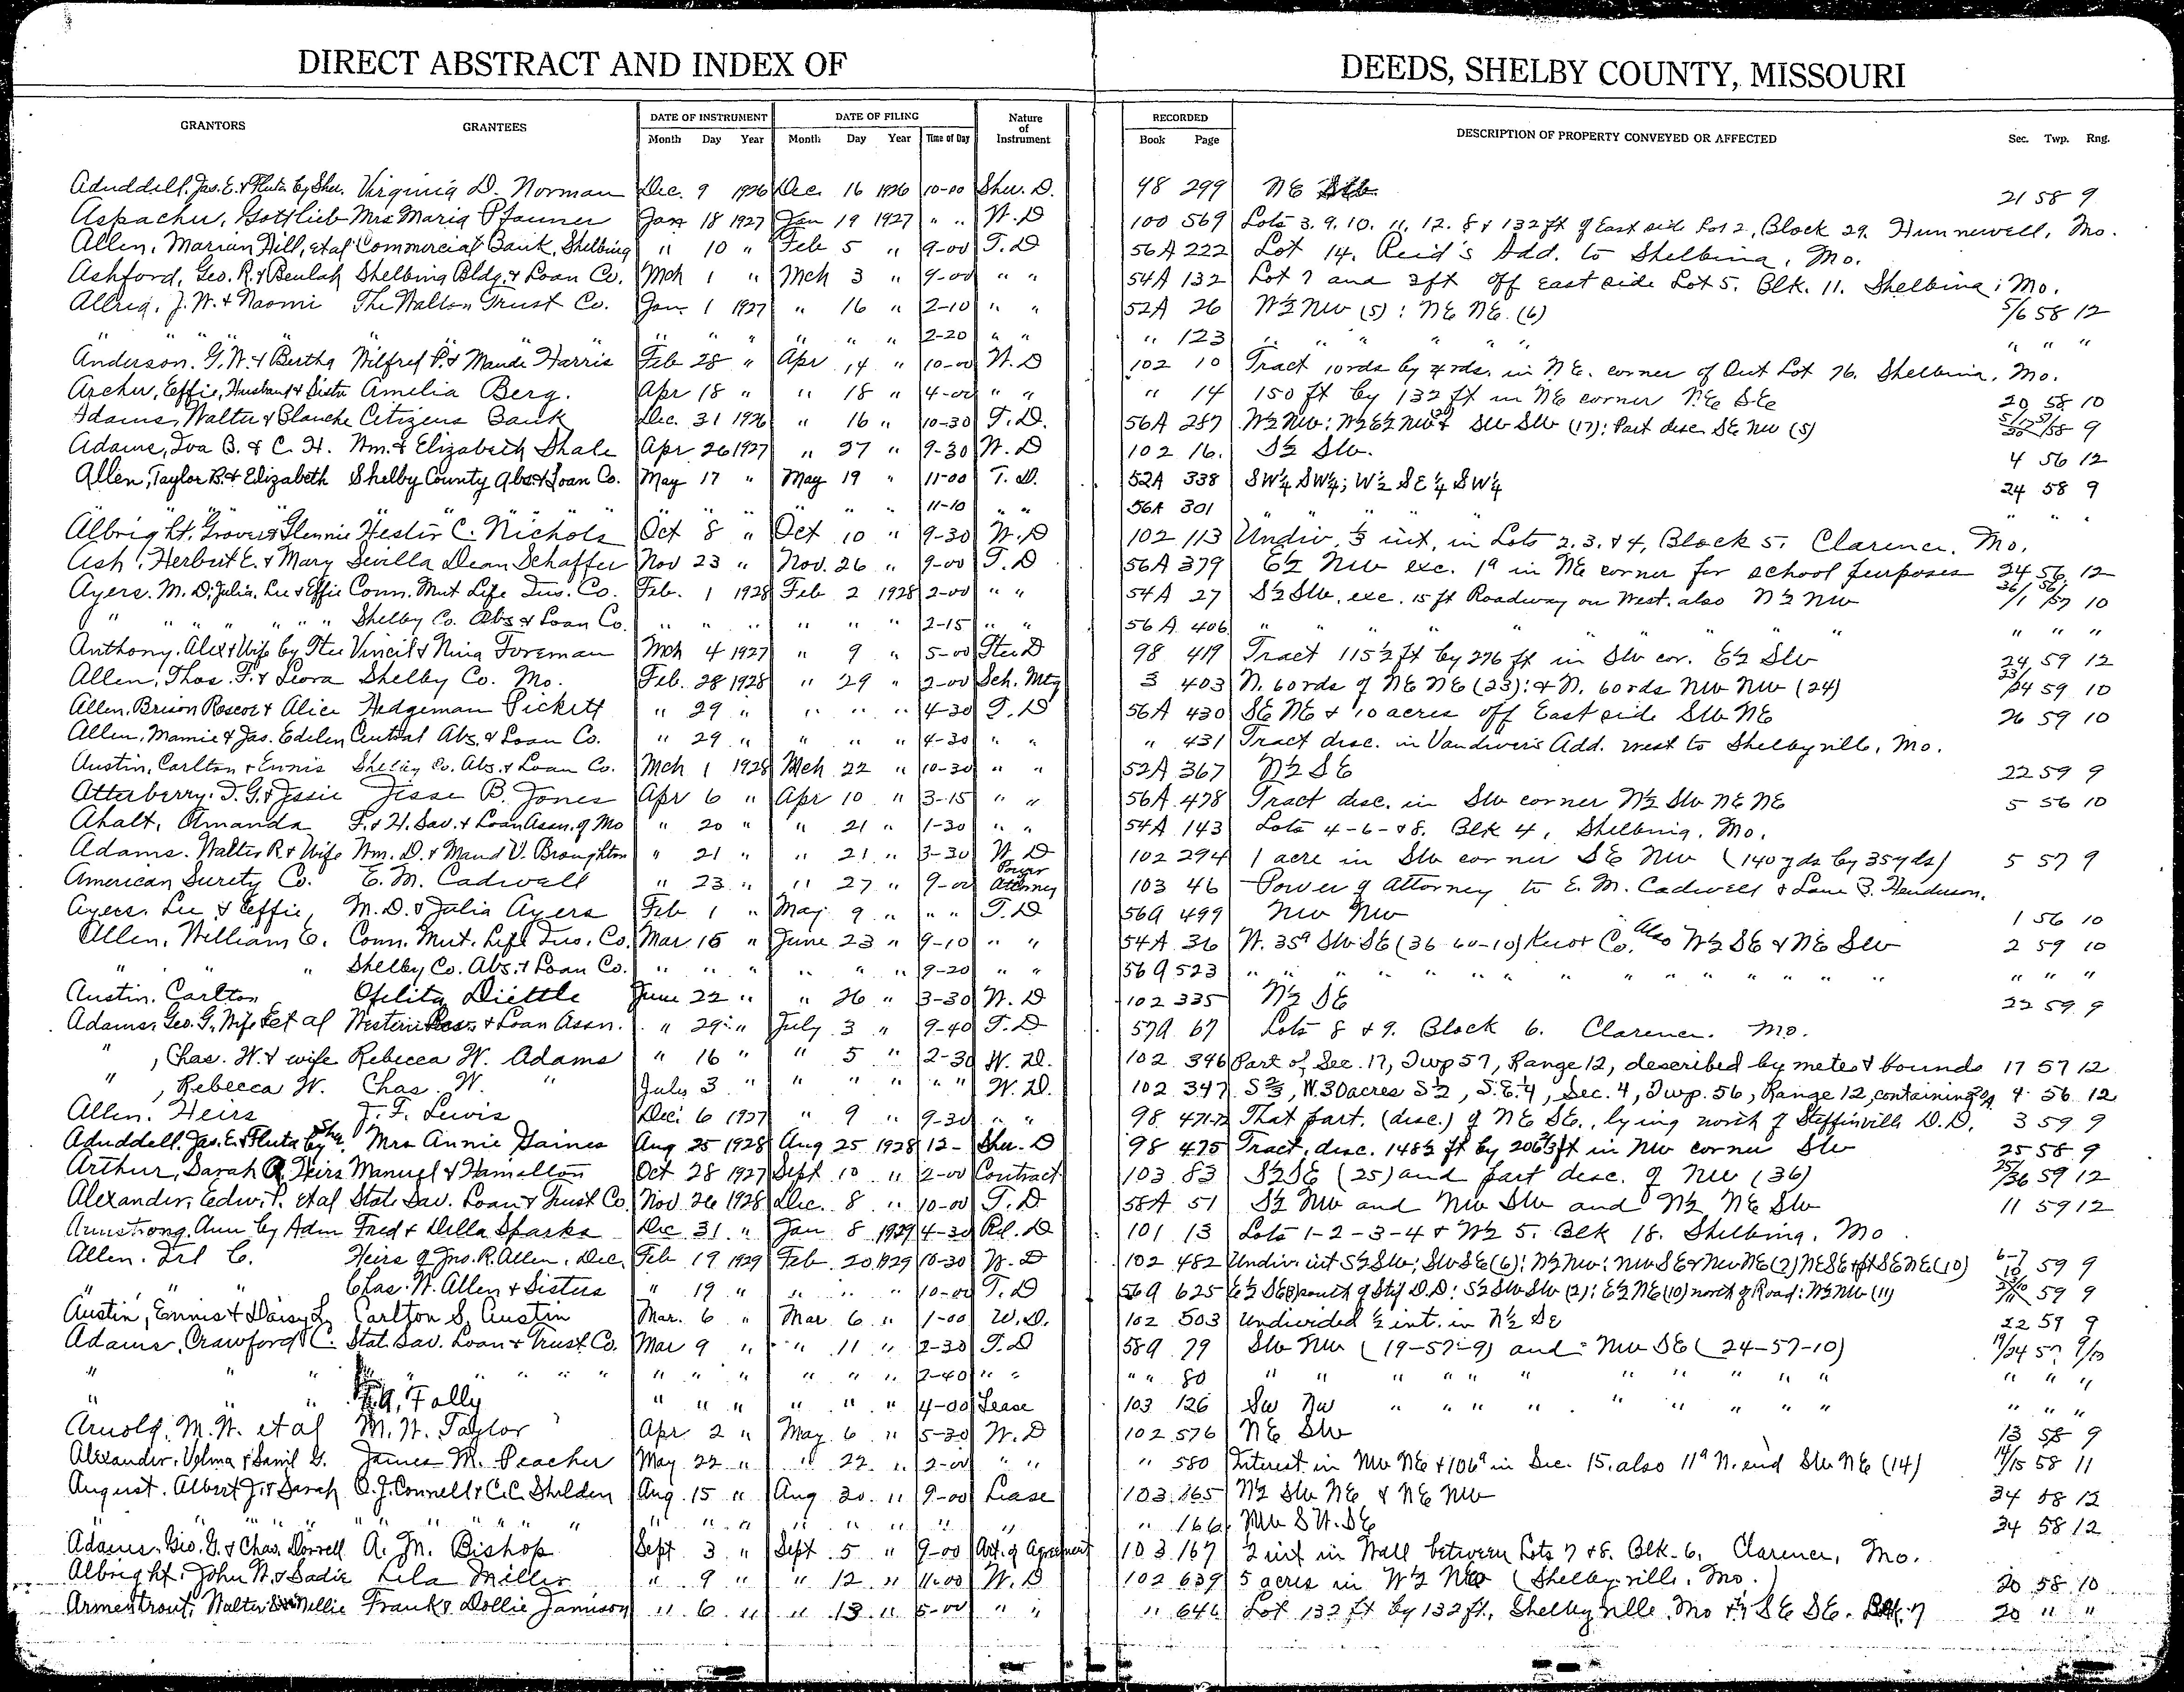 DIRECT ABSTRACT AND INDEX OF DEEDS, SHELBY COUNTY, MISSOURI
GRANTORS GRANTEES DATE OF INSTRUMENT Month Day Year DATE OF FILING Month Day Year Time of Day Nature of Instrument RECORDED Book Page DESCRIPTION OF PROPERTY CONVEYED OR AFFECTED Sec. Twp. Rng.
Aduddell, Jas. E. & Fluta by Sher. Virginia D. Norman Dec. 9 1926 Dec. 16 1926 10-00 Sher. D. 98 299 NE 21 58 9
Aspacher, Gottlieb Mrs Maria Pfanner Jan 18 1927 Jan 19 1927 " " W.D 100 569 Lots 3. 9. 10. 11. 12. 8 & 132 ft of East side Lot 2, Block 29. Hunnewell, Mo.
Allen, Marian Hill, et al Commercial Bank, Shelbina " 10 " Feb 5 " 9-00 T.D 56A 222 Lot 14. Reid's Add. to Shelbina, Mo.
Ashford, Geo. R. & Beulah Shelbina Bldg. & Loan Co. Mch 1 " Mch 3 " 9-00 " " 54A 132 Lot 7 and 2ft off East side Lot 5. Blk. 11. Shelbina, Mo.
Allrig, J. W. & Naomi The Walton Trust Co. Jan. 1 1927 " 16 " 2-10 " " 52A 26 W½ NW (5): NE NE. (6) 5/6 58 12
" " " " " " " " " 2-20 " " " 123 " " " " " " " "
Anderson. G. W. & Bertha Wilfred P. & Maude Harris Feb 28 " Apr 14 " 10-00 W.D 102 10 Tract 10rds by 4rds. in NE. corner of Out Lot 76. Shelbina, Mo.
Archer, Effie, Husband & Sister Amelia Berg. Apr 18 " " 18 " 4-00 " " " 14 150 ft by 132 ft in NE corner NE SE 20 58 10
Adams, Walter & Blanche Citizens Bank Dec. 31 1926 " 16 " 10-30 T.D. 56A 287 W½ NW: W½ E½ NW & SW SW (17): Part desc SE NW (5) 9
Adams, Iva B. & C. H. Wm. & Elizabeth Shale Apr 26 1927 " 27 " 9-30 W.D 102 16. S½ SW. 4 56 12
Allen, Taylor B. & Elizabeth Shelby County Abs. & Loan Co. May 17 " May 19 " 11-00 T.D. 52A 338 SW¼ SW¼; W½ SE¼ SW¼ 24 58 9
" " " " " " " 11-10 " " 56A 301 " " "
Albright. Grover & Glennie Hester C. Nichols Oct 8 " Oct 10 " 9-30 W.D 102 113 Undiv. ⅓ int. in Lots 2. 3. & 4, Block 5. Clarence. Mo.
Ash. Herbert E. & Mary Sevilla Dean Schaffer Nov 23 " Nov. 26 " 9-00 T.D 56A 379 E½ NW exc. 1a in NE corner for school purposes 24 56 12
Ayers. M. D. Julia, Lee & Effie Conn. Mut Life Ins. Co. Feb. 1 1928 Feb 2 1928 2-00 " " 54A 27 S½ SW, exc. 15 ft Roadway on West. also N½ NW 36/1 56/57 10
" " " " " " Shelby Co. Abs & Loan Co. " " " " " " 2-15 " " 56A 406 " " " " " " " "
Anthony. Alex & Wife by Ttee Vincil & Nina Foreman Mch 4 1927 " 9 " 5-00 Ttee D 98 419 Tract 115½ ft by 276 ft in SW cor. E½ SW 24 59 12
Allen, Thos. F. & Leora Shelby Co. Mo. Feb. 28 1928 " 29 " 2-00 Sch. Mtg 3 403 N. 60 rds of NE NE (23): & N. 60 rds NW NW (24) 23/24 59 10
Allen, Brison Roscoe & Alice Hedgeman Pickett " 29 " " " " 4-30 T.D 56A 430 SE NE & 10 acres off East side SW NE 26 59 10
Allen, Mamie & Jas. Edelen Central Abs. & Loan Co. " 29 " " " " 4-30 " " " 431 Tract desc. in Vandiver's Add. west to Shelbyville, Mo.
Austin, Carlton & Ennis Shelby Co. Abs. & Loan Co. Mch 1 1928 Mch 22 " 10-30 " " 52A 367 N½ SE 22 59 9
Atterberry. T. G. & Jessie Jesse B. Jones Apr 6 " Apr 10 " 3-15 " " 56A 478 Tract desc. in SW corner N½ SW NE NE 5 56 10
Ahalt, Amanda F. & H. Sav. & Loan Assn. of Mo " 20 " " 21 " 1-30 " " 54A 143 Lots 4-6-&8. Blk 4, Shelbina, Mo.
Adams. Walter R & Wife Wm. D. & Maud V. Broughton " 21 " " 21 " 3-30 W.D 102 294 1 acre in SW corner SE NW (140 yds by 35 yds) 5 57 9
American Surety Co. E. M. Cadwell " 23 " " 27 " 9-00 Power Attorney 103 46 Power of Attorney to E. M. Cadwell & Lane B. Henderson.
Ayers. Lee & Effie, M. D. & Julia Ayers Feb 1 " May 9 " " " T.D 56A 499 NW NW 1 56 10
Allen, William E. Conn. Mut. Life Ins. Co. Mar 15 " June 23 " 9-10 " " 54A 36 W. 35a SW SE (36-60-10) Knox Co. Also W½ SE & NE SW 2 59 10
" " " Shelby Co. Abs. & Loan Co. " " " " " " 9-20 " " 56A 523 " " " " " " " " " " "
Austin. Carlton Ofelita Diettle June 22 " " 26 " 3-30 W.D 102 335 N½ SE 22 59 9
Adams, Geo. G., Wife et al Western & Loan Assn. " 29 " July 3 " 9-40 T.D 57A 67 Lots 8 & 9. Block 6. Clarence. Mo.
" , Chas. W. & wife Rebecca W. Adams " 16 " " 5 " 2-30 W.D. 102 346 Part of Sec. 17, Twp 57, Range 12, described by metes & bounds 17 57 12
" , Rebecca W. Chas. W. " July 3 " " " " " " W.D. 102 347 S⅔, W. 30 acres S½, S.E.¼, Sec. 4, Twp. 56, Range 12, containing 20a 4 56 12
Allen. Heirs T. F. Lewis Dec. 6 1927 " 9 " 9-30 " " 98 471-72 That part. (desc.) of NE SE., lying north of Steffinville D.D. 3 59 9
Aduddell. Jas. E. & Fluta by Sher. Mrs Annie Gaines Aug 25 1928 Aug 25 1928 12- Sher. D 98 475 Tract, desc. 148½ ft by 206⅔ ft in NW corner SW 25 58 9
Arthur, Sarah A. Heirs Manuel & Hamellon Oct 28 1927 Sept 10 " 2-00 Contract 103 83 S½ SE (25) and part desc. of NW (36) 25/36 59 12
Alexander, Edw. P. et al State Sav. Loan & Trust Co. Nov 26 1928 Dec. 8 " 10-00 T.D 58A 51 S½ NW and NW SW and N½ NE SW 11 59 12
Armstrong. Ann by Adm Fred & Della Sparks Dec 31 " Jan 8 1929 4-30 Rel. D 101 13 Lots 1-2-3-4 & W½ 5. Blk 18. Shelbina. Mo
Allen. Irl C. Heirs of Jno. R. Allen, Dec. Feb 19 1929 Feb 20 1929 10-30 W.D 102 482 Undiv. int S½ SW; SW SE (6): N½ NW: NW SE & NW NE (7) NE SE & pt SE NE (10) 6-7 10 59 9
" " " Chas. W. Allen & Sisters " 19 " " " " 10-00 T.D 56A 625 E½ SE(3) south of Stef D.D: S½ SW SW (2): E½ NE (10) north of Road: N½ NW (11) 59 9
Austin, Ennis & Daisy L. Carlton S. Austin Mar. 6 " Mar 6 " 1-00 W.D. 102 503 Undivided ½ int. in N½ SE 22 59 9
Adams, Crawford C. State Sav. Loan & Trust Co. Mar 9 " " 11 " 2-30 T.D 58A 79 SW NW (19-57-9) and NW SE (24-57-10) 19/24 57 9/10
" " " " " " " " " " " " " 2-40 " " " " 80 " " " " " " " " " " " " "
" " " Folly " " " " " " 4-00 Lease 103 126 SW NW " " " " " " " " " " " "
Arnold, M. W. et al M. W. Taylor Apr 2 " May 6 " 5-30 W.D 102 576 NE SW 13 58 9
Alexander, Velma & Saml G. James M. Peacher May 22 " " 22 " 2-00 " " " 580 Interest in NW NE & 106a in Sec. 15. also 11a N. end SW NE (14) 14/15 58 11
August. Albert J. & Sarah O. J. Connell & C. C. Shelden Aug. 15 " Aug 30 " 9-00 Lease 103 165 N½ SW NE & NE NW 34 58 12
" " " " " " " " " " " " " " " 166 NW SW. SE 34 58 12
Adams, Geo. G. & Chas. Dorrell A. M. Bishop Sept 3 " Sept 5 " 9-00 Art. of Agreement 103 167 ½ int in Wall between Lots 7 & 8. Blk. 6, Clarence, Mo.
Albright. John W. & Sadie Lila Miller " 9 " " 12 " 11-00 W.D 102 639 5 acres in W½ NW (Shelbyville, Mo.) 20 58 10
Armentrout, Walter & Nellie Frank & Dollie Jamison " 6 " " 13 " 5-00 " " " 646 Lot 132 ft by 132 ft, Shelbyville, Mo SE SE. Blk. 7 20 " "